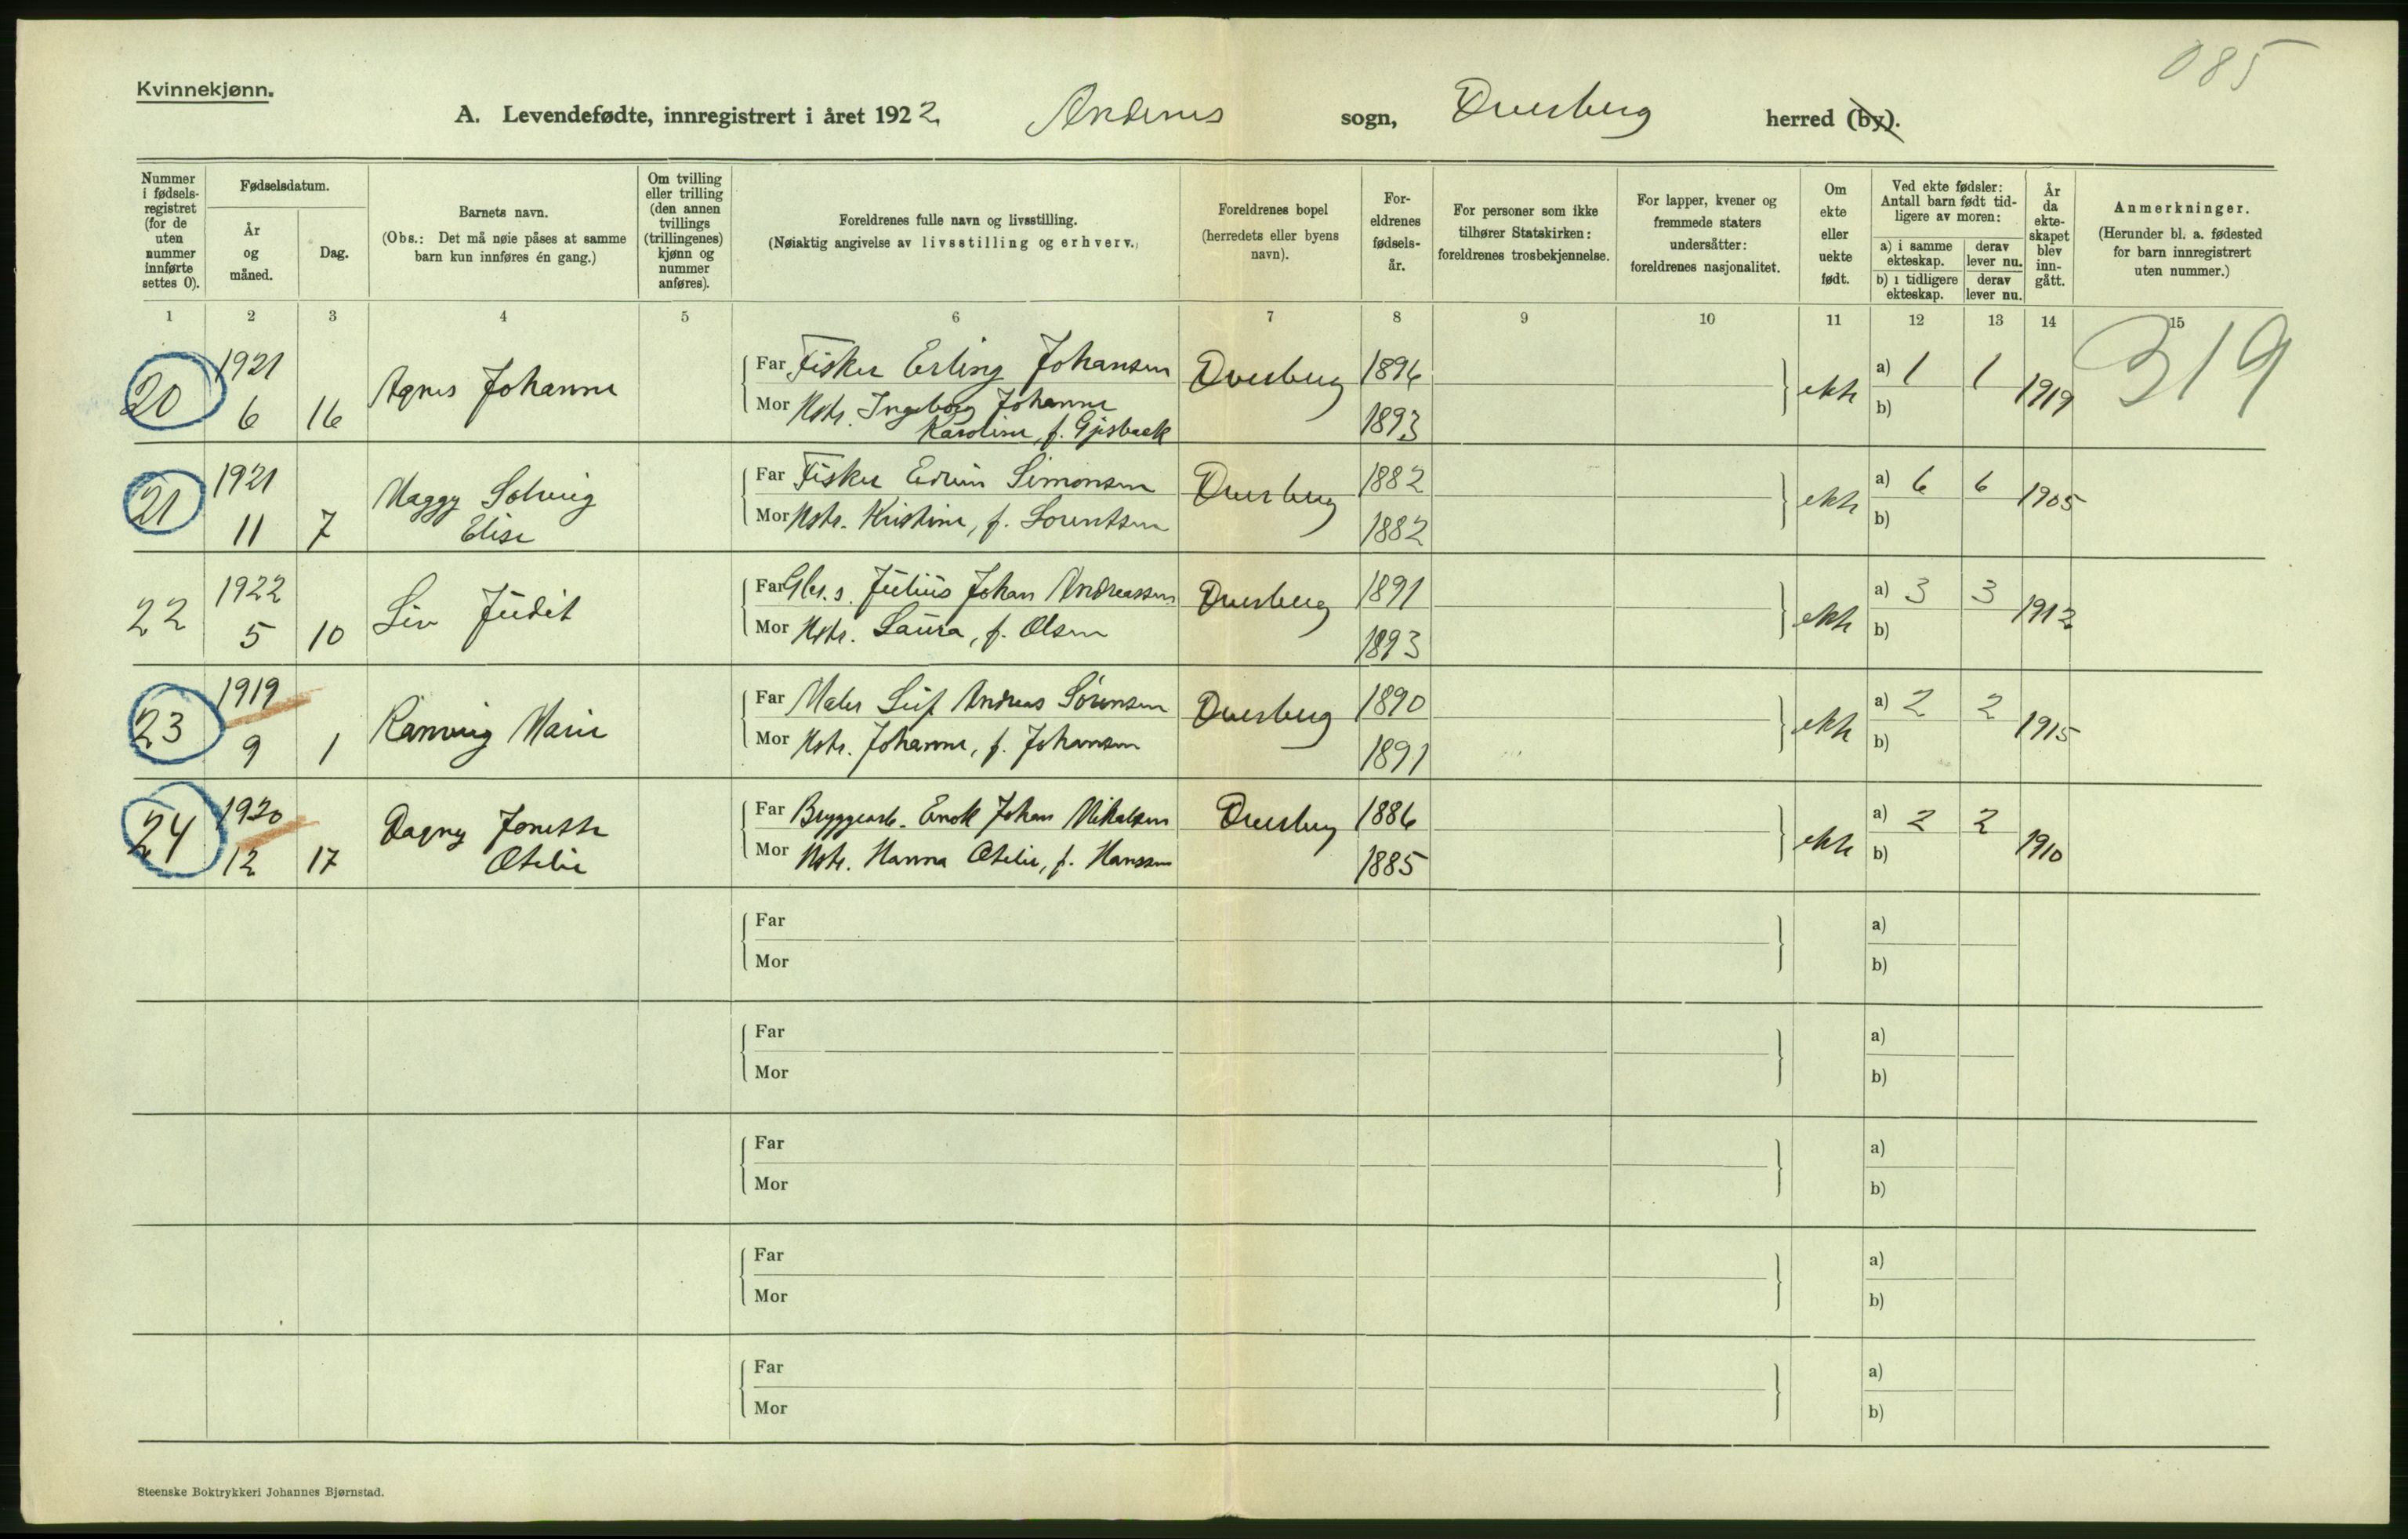 085
Kvinnekjønn.
A. Levendefødte, innregistrert i året 1922. Andenes sogn, Dverberg herred (by).
Nummer i fødselsregistret (for de uten nummer innførte settes 0).
Fødselsdatum.
År og måned.
Dag.
Barnets navn.
(Obs.: Det må nøie påses at samme barn kun innføres én gang.)
Om tvilling eller trilling (den annen tvillings (trillingenes) kjønn og nummer anføres).
Foreldrenes fulle navn og livsstilling.
(Nøiaktig angivelse av livsstilling og erhverv.)
Foreldrenes bopel (herredets eller byens navn).
Foreldrenes fødselsår.
For personer som ikke tilhører Statskirken: foreldrenes trosbekjennelse.
For lapper, kvener og fremmede staters undersåtter: foreldrenes nasjonalitet.
Om ekte eller uekte født.
Ved ekte fødsler: Antall barn født tidligere av moren:
a) i samme ekteskap.
derav lever nu.
b) i tidligere ekteskap.
derav lever nu.
År da ekteskapet blev inngått.
Anmerkninger.
(Herunder bl. a. fødested for barn innregistrert uten nummer.)
1 2 3 4 5 6 7 8 9 10 11 12 13 14 15
319
20 1921 6 16 Agnes Johanne
Far Fisker Erling Johansen Dverberg 1896
Mor Hstr. Ingeborg Johanne
Karoline, f. Gjisbaek 1893
ekte a) 1 1 1919
b)
21 1921 11 7 Maggy Solveig
Elise
Far Fisker Edvin Simonsen Dverberg 1882
Mor Hstr. Kristine, f. Lorentsen 1882
ekte a) 6 6 1905
b)
22 1922 5 10 Liv Judit
Far Gbr.s. Julius Johan Andreassen Dverberg 1891
Mor Hstr. Laura, f. Olsen 1893
ekte a) 3 3 1912
b)
23 1919 9 1 Ranveig Marie
Far Maler Leif Andreas Sörensen Dverberg 1890
Mor Hstr. Johanne, f. Johansen 1891
ekte a) 2 2 1915
b)
24 1920 12 17 Dagny Jonette
Otelie
Far Bryggearb. Enok Johan Mikalsen Dverberg 1886
Mor Hstr. Hanna Otelie, f. Hanssen 1885
ekte a) 2 2 1910
b)
Far a)
Mor b)
Far a)
Mor b)
Far a)
Mor b)
Far a)
Mor b)
Far a)
Mor b)
Steenske Boktrykkeri Johannes Bjørnstad.